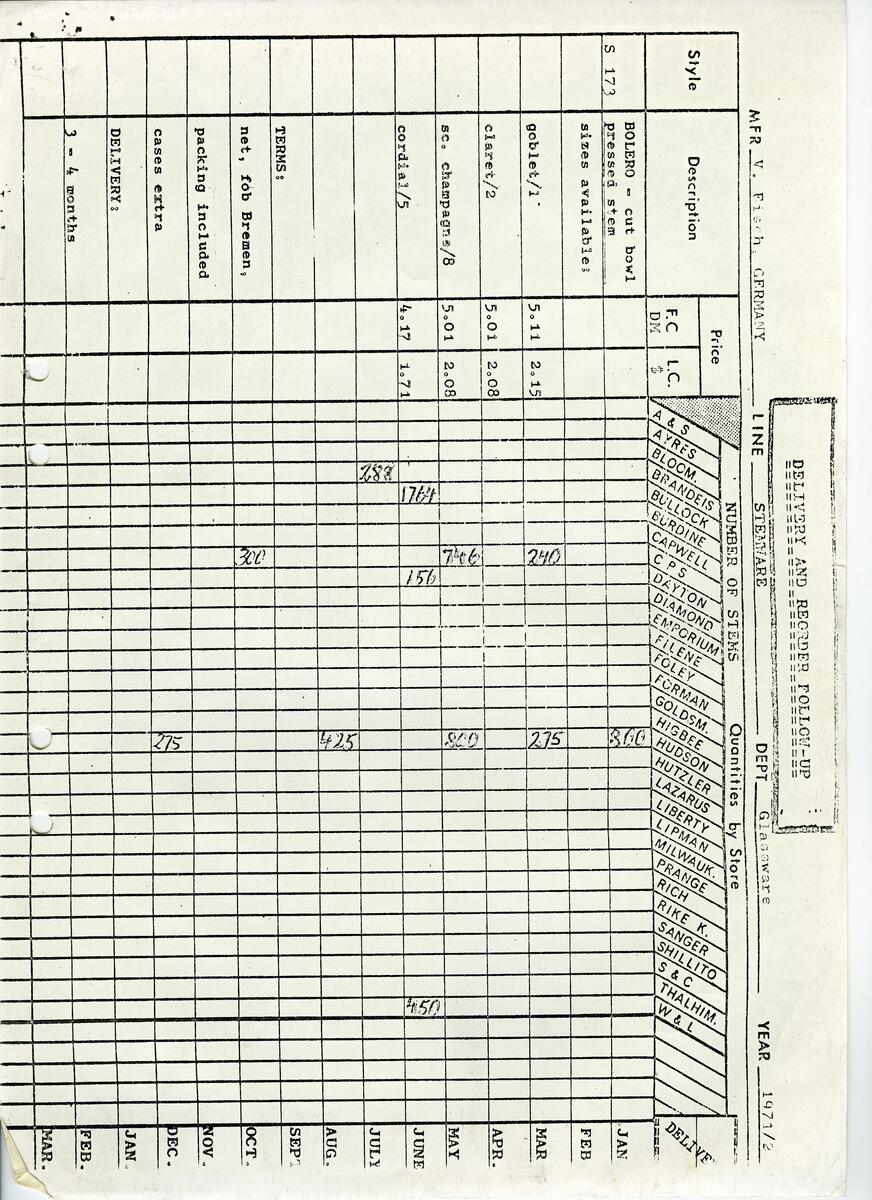 DELIVERY AND REORDER FOLLOW-UP
MFR V. Fisch, GERMANY LINE STEMWARE DEPT Glassware YEAR 1971/2
NUMBER OF STEMS Quantities by Store
Style Description Price
F.C DM L.C. $
A & S
AYRES
BLOOM.
BRANDEIS
BULLOCK
BURDINE
CAPWELL
C P S
DAYTON
DIAMOND
EMPORIUM
FILENE
FOLEY
FORMAN
GOLDSM.
HIGBEE
HUDSON
HUTZLER
LAZARUS
LIBERTY
LIPMAN
MILWAUK.
PRANGE
RICH
RIKE K.
SANGER
SHILLITO
S & C
THALHIM.
W & L
DELIVE
S 173 BOLERO - cut bowl
pressed stem 300 JAN
sizes available: FEB
goblet/1 5.11 2.15 240 275 MAR
claret/2 5.01 2.08 APR.
sc. champagne/8 5.01 2.08 746 800 MAY
cordial/5 4.17 1.71 1764 156 450 JUNE
288 JULY
425 AUG.
TERMS: SEPT
net, fob Bremen, 300 OCT.
packing included NOV.
cases extra 275 DEC.
DELIVERY: JAN.
3 - 4 months FEB.
MAR.